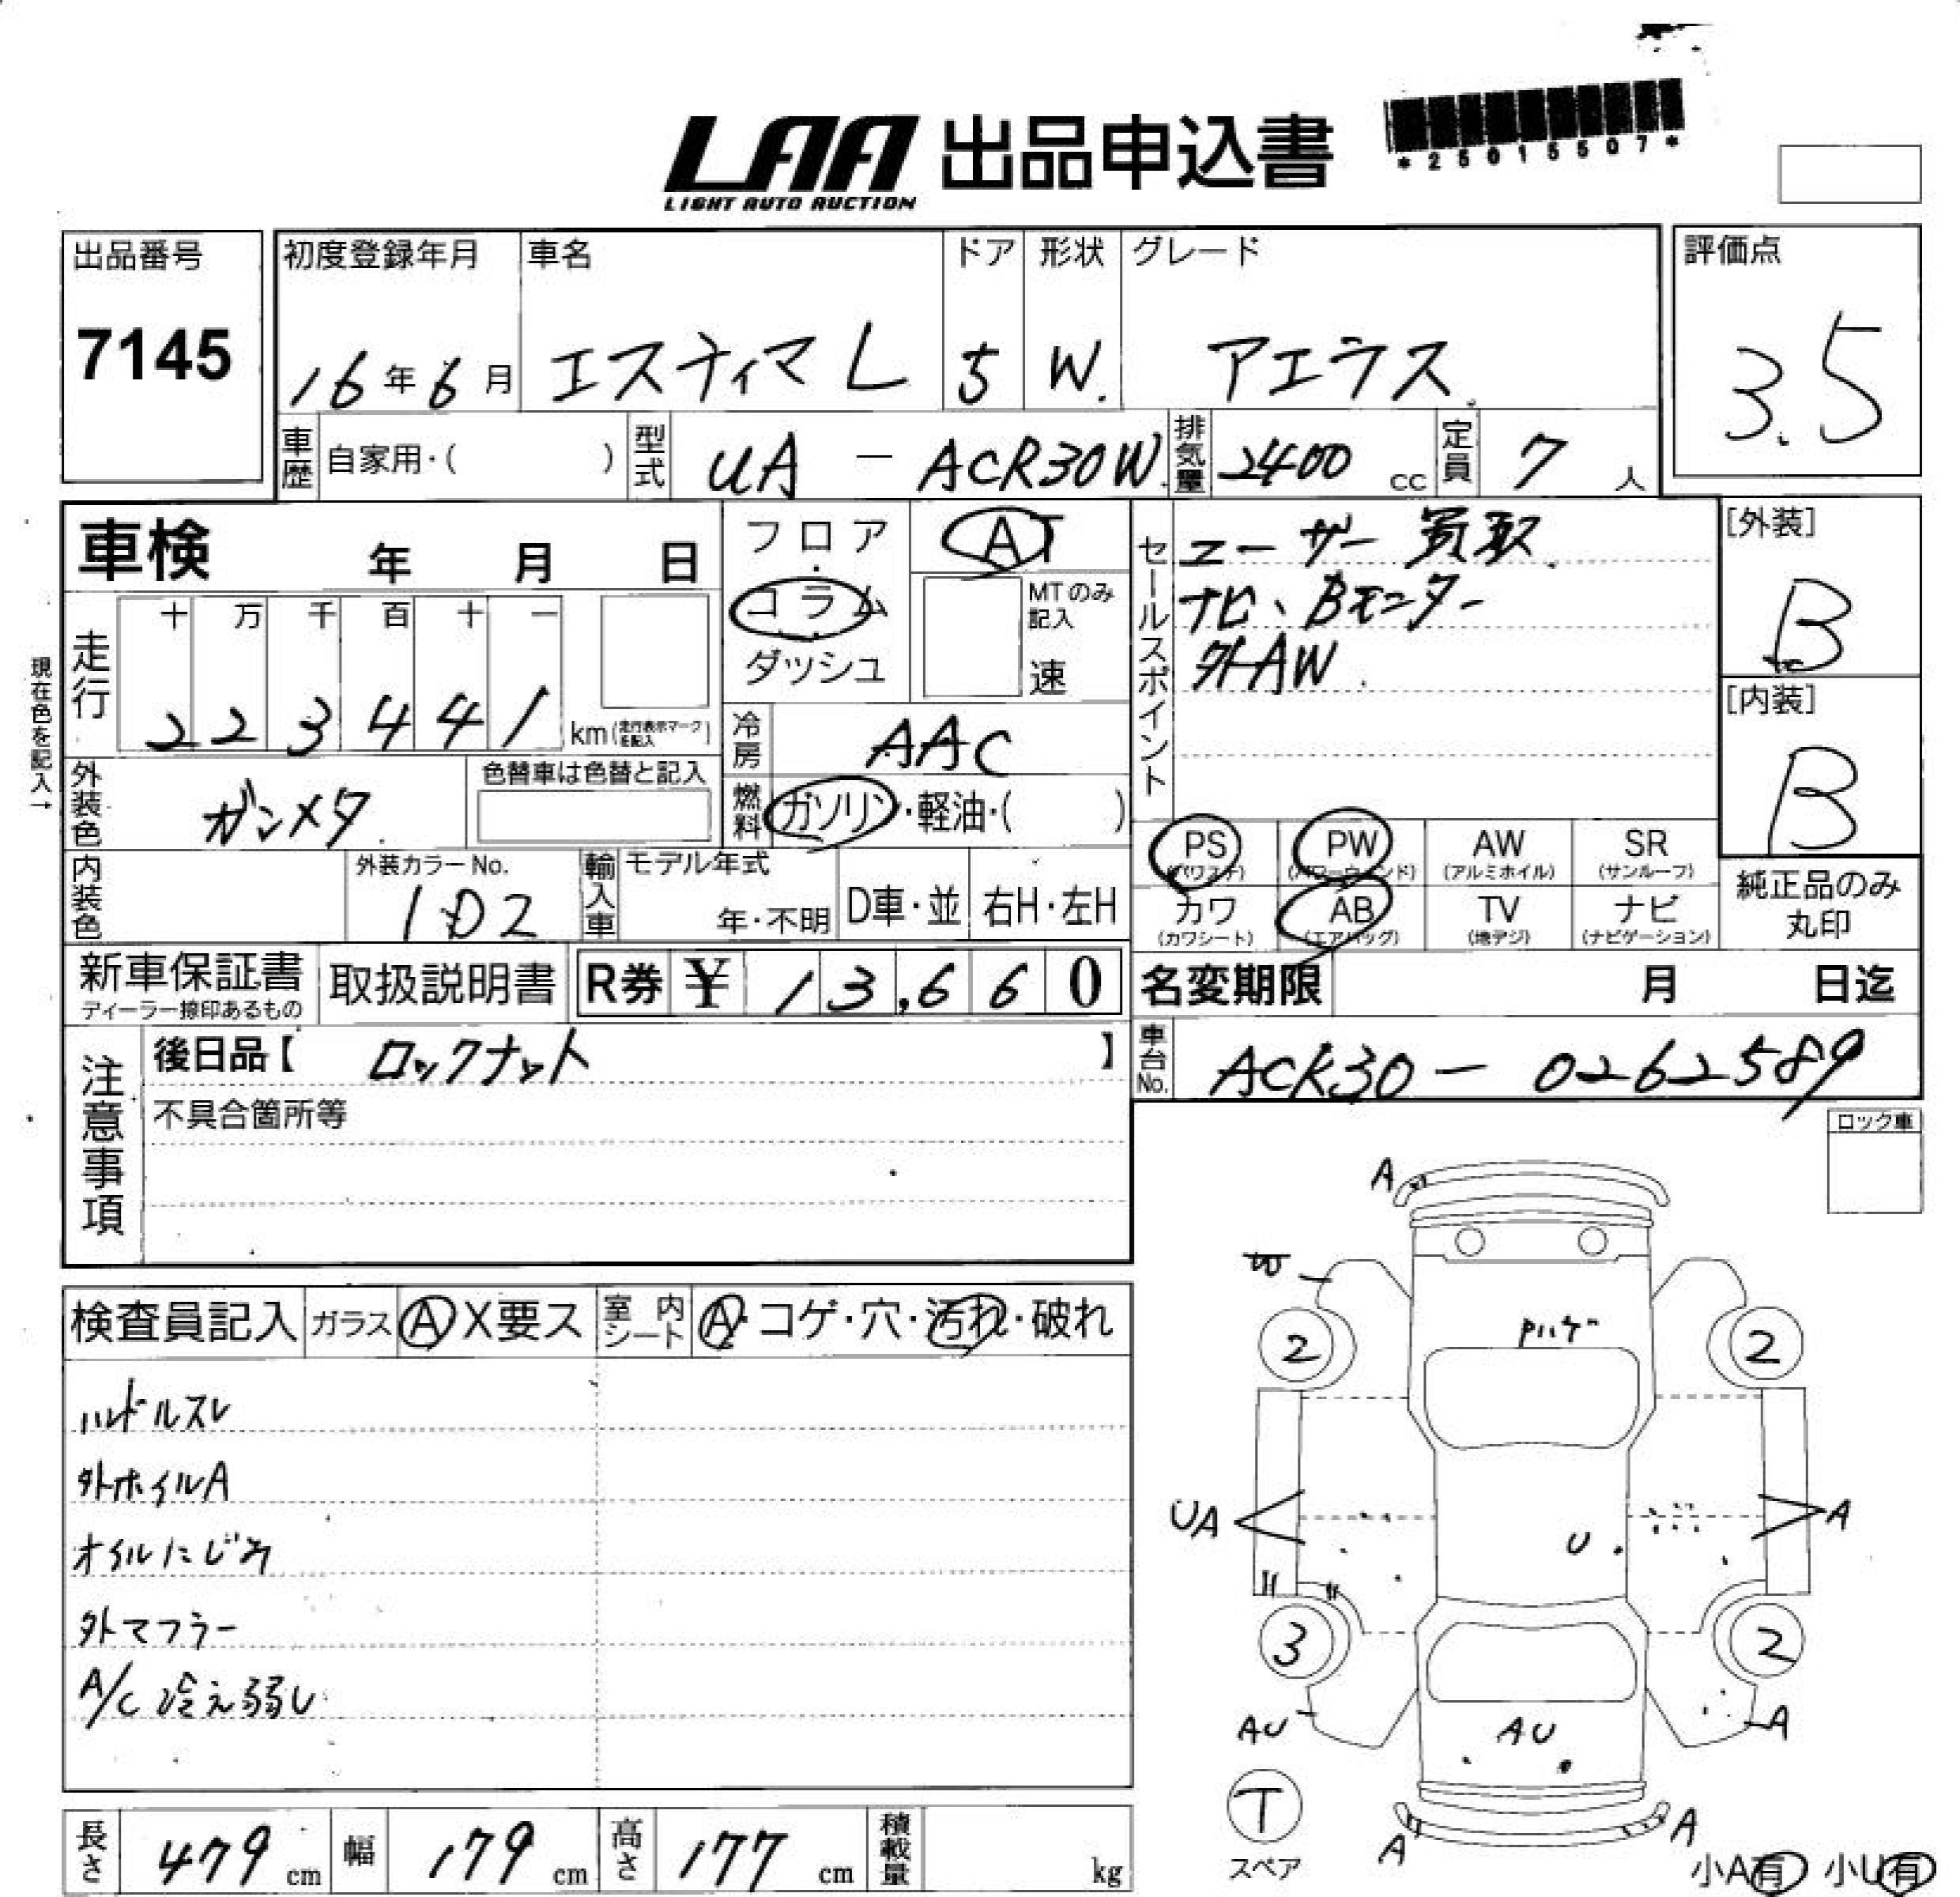 LAA 出品申込書
LIGHT AUTO AUCTION
*25015507*
出品番号
7145
初度登録年月
16年6月
車名
エスティマL
ドア
5
形状
W.
グレード
アエラス
評価点
3.5
車歴 自家用・( )
型式 UA - ACR30W
排気量 2400 cc
定員 7 人
車検 年 月 日
走行 十 万 千 百 十 一
2 2 3 4 4 1 km(走行表示マークを記入)
現在色を記入→
フロア
コラム
ダッシュ
AT
MTのみ記入
速
冷房 AAC
燃料 ガソリン・軽油・( )
セールスポイント
ユーザー買取
ナビ、Bモニター
外AW
[外装]
B
[内装]
B
外装色 ガンメタ
色替車は色替と記入
内装色
外装カラーNo.
1D2
輸入車 モデル年式
年・不明 D車・並 右H・左H
PS (パワステ) PW (パワーウィンド) AW (アルミホイル) SR (サンルーフ)
カワ (カワシート) AB (エアバッグ) TV (地デジ) ナビ (ナビゲーション)
純正品のみ
丸印
新車保証書
ディーラー捺印あるもの
取扱説明書
R券 ¥ 13,660
名変期限 月 日迄
車台No. ACR30 - 0262589
注意事項
後日品【 ロックナット 】
不具合箇所等
ロック車
検査員記入 ガラス A X要ス 室内シート A・コゲ・穴・汚れ・破れ
ハンドルスレ
外ホイルA
オイルにじみ
外マフラー
A/C 冷え弱い
A
2
Pハゲ
2
UA
U
A
3
2
AU
AU
A
T
スペア
A
A
小A有 小U有
長さ 479 cm 幅 179 cm 高さ 177 cm 積載量 kg